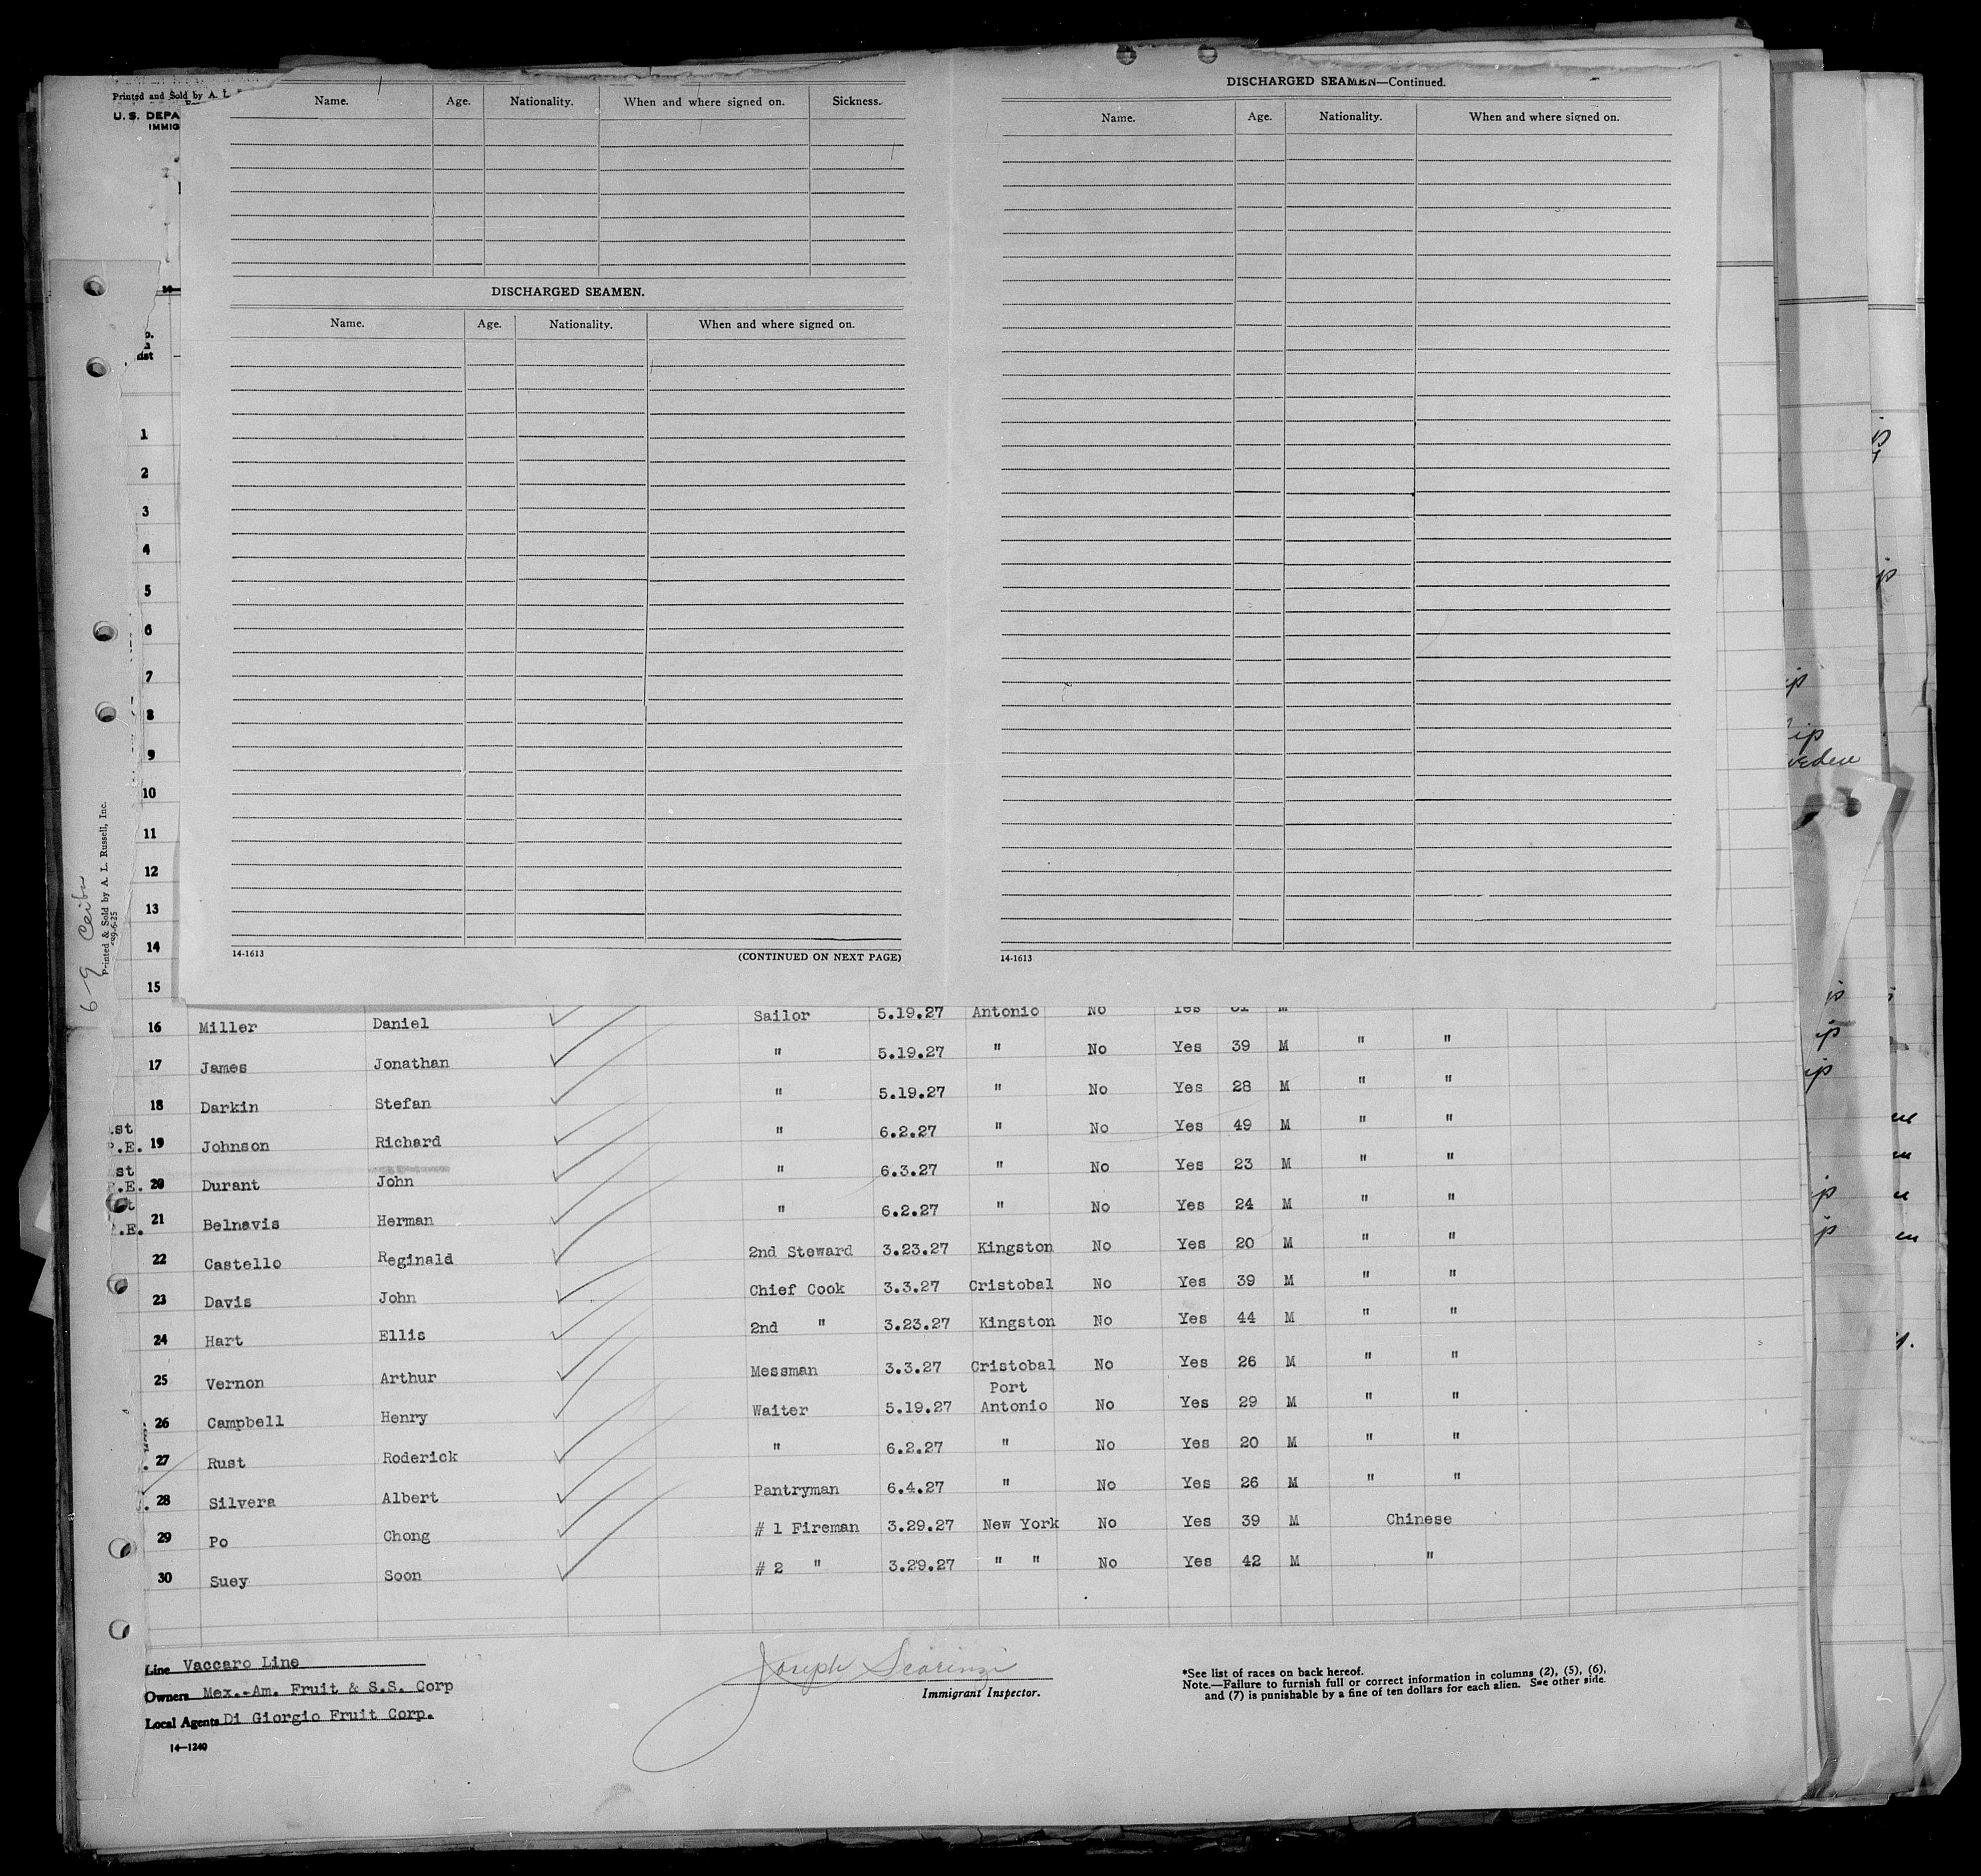 Printed and Sold by A. L.
U. S. DEPA
IMMIG
Name. Age. Nationality. When and where signed on. Sickness.
DISCHARGED SEAMEN.
Name. Age. Nationality. When and where signed on.
14-1613 (CONTINUED ON NEXT PAGE)
DISCHARGED SEAMEN—Continued.
Name. Age. Nationality. When and where signed on.
14-1613
1
2
3
4
5
6
7
8
9
10
11
12
13
14
15
6-9 Ceiba
Printed & Sold by A. L. Russell, Inc.
16 Miller Daniel Sailor 5.19.27 Antonio No Yes M
17 James Jonathan " 5.19.27 " No Yes 39 M " "
18 Darkin Stefan " 5.19.27 " No Yes 28 M " "
19 Johnson Richard " 6.2.27 " No Yes 49 M " "
20 Durant John " 6.3.27 " No Yes 23 M " "
21 Belnavis Herman " 6.2.27 " No Yes 24 M " "
22 Castello Reginald 2nd Steward 3.23.27 Kingston No Yes 20 M " "
23 Davis John Chief Cook 3.3.27 Cristobal No Yes 39 M " "
24 Hart Ellis 2nd " 3.23.27 Kingston No Yes 44 M " "
25 Vernon Arthur Messman 3.3.27 Cristobal No Yes 26 M " "
26 Campbell Henry Waiter 5.19.27 Port Antonio No Yes 29 M " "
27 Rust Roderick " 6.2.27 " No Yes 20 M " "
28 Silvera Albert Pantryman 6.4.27 " No Yes 26 M " "
29 Po Chong # 1 Fireman 3.29.27 New York No Yes 39 M Chinese
30 Suey Soon # 2 " 3.29.27 " " No Yes 42 M "
Line Vaccaro Line
Owners Mex.-Am. Fruit & S.S. Corp
Local Agents Di Giorgio Fruit Corp.
14—1240
Joseph Scarinzi
Immigrant Inspector.
*See list of races on back hereof.
Note.—Failure to furnish full or correct information in columns (2), (5), (6),
and (7) is punishable by a fine of ten dollars for each alien. See other side.